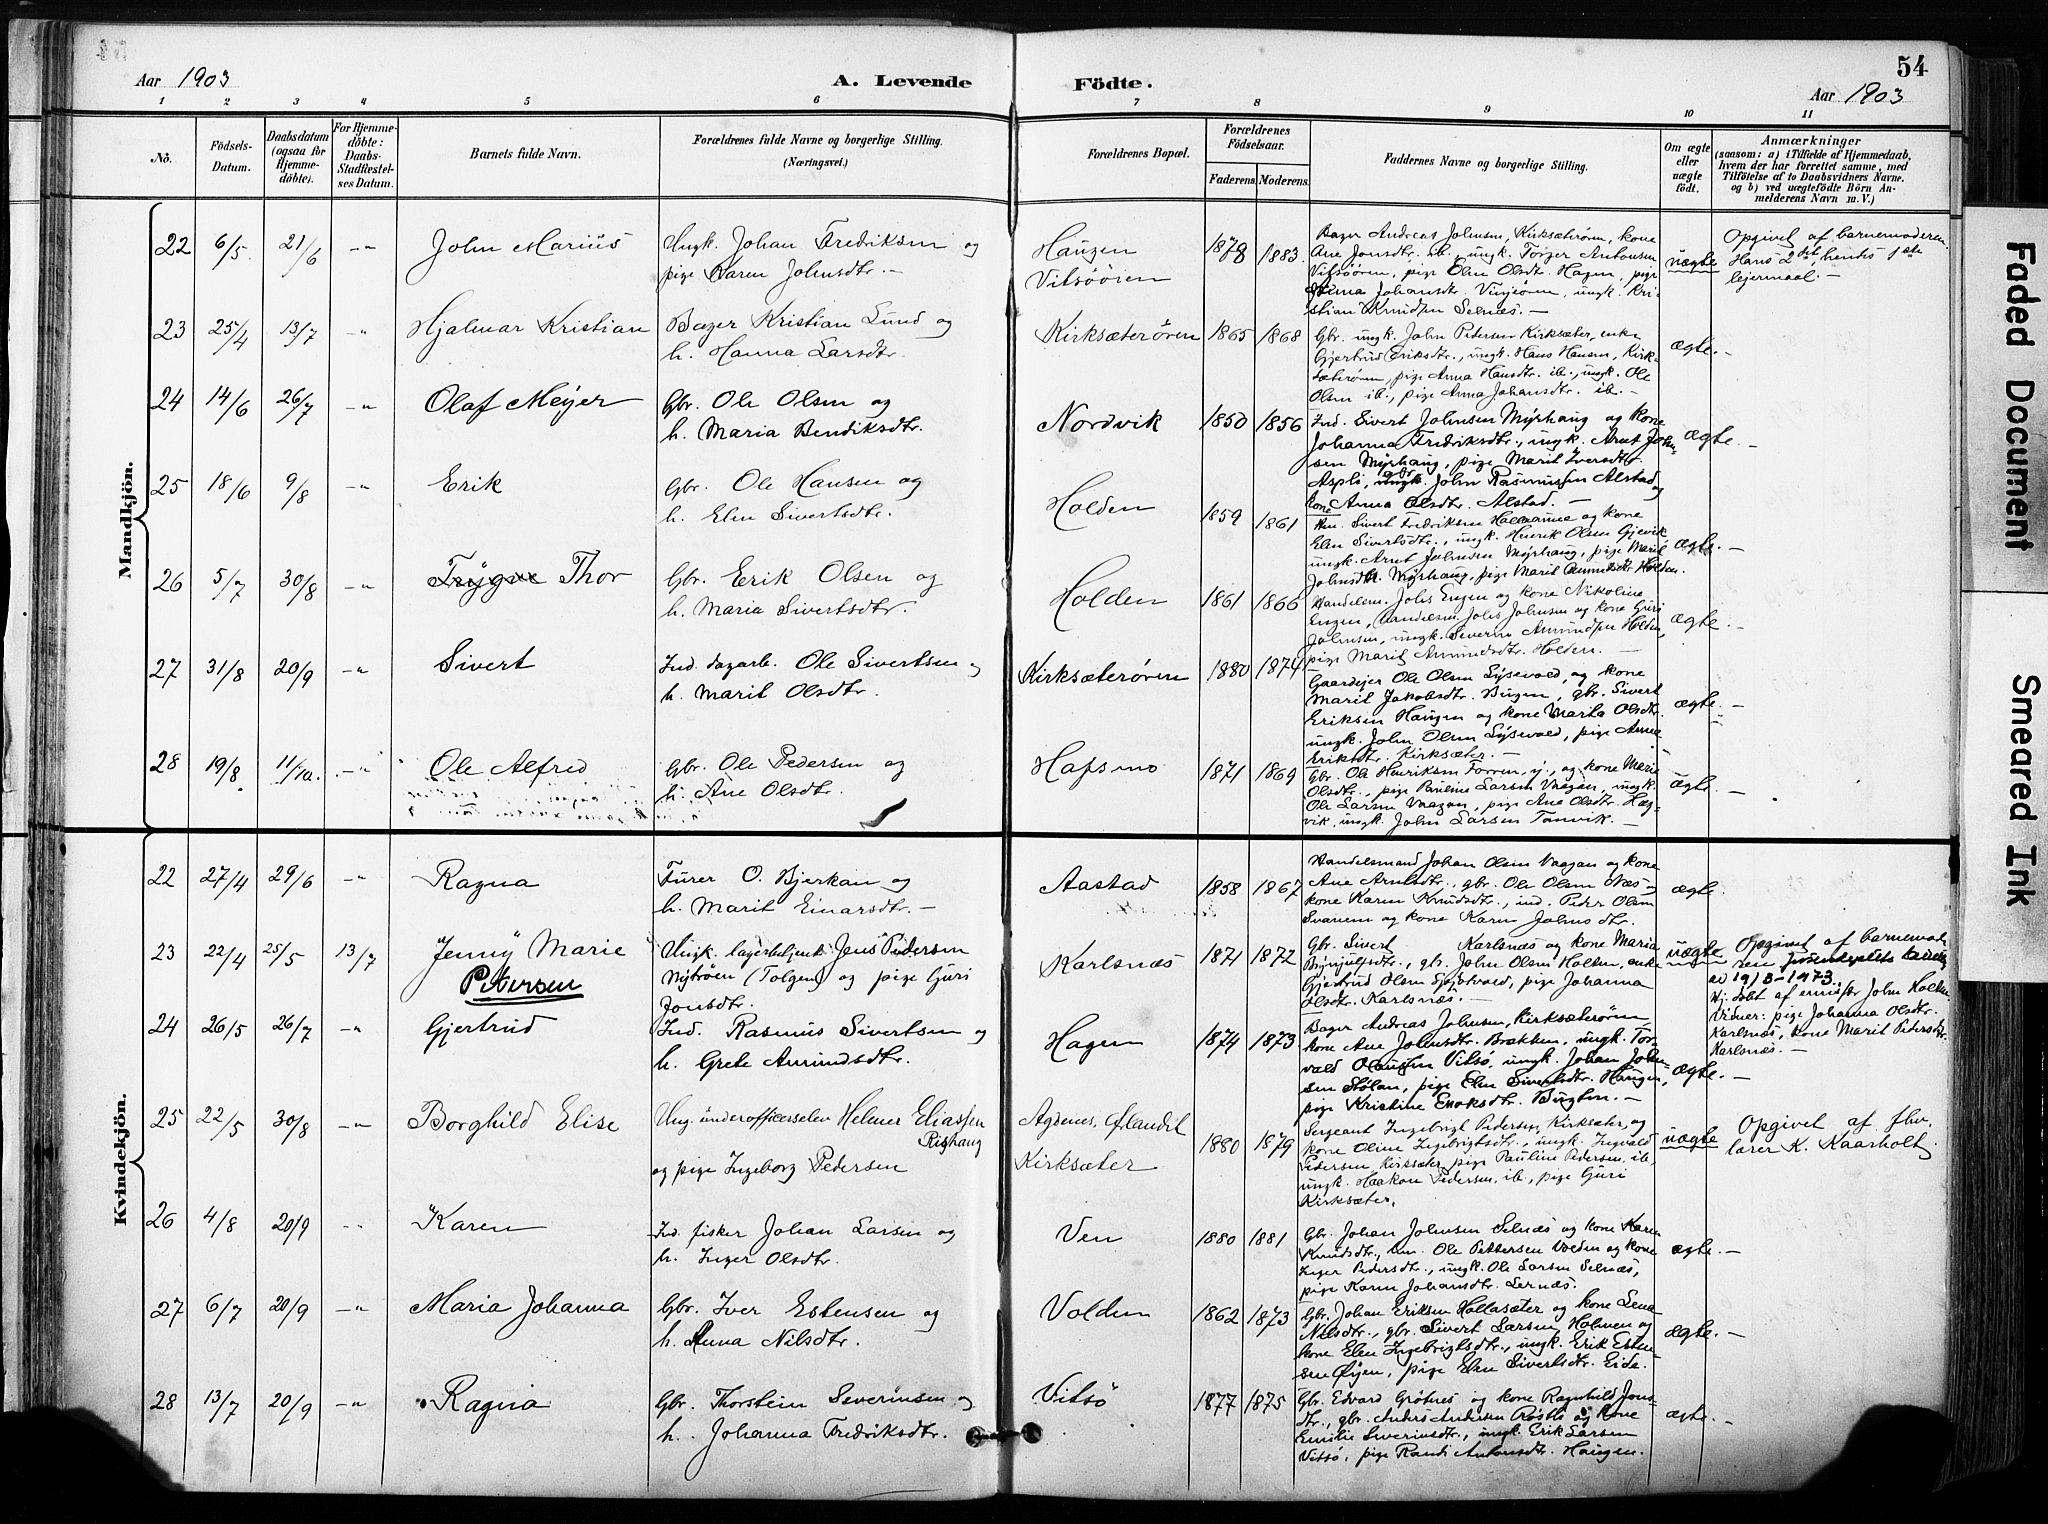 Aar 1903
A. Levende
Födte.
54
Aar 1903
1 2 3 4 5 6 7 8 9 10 11
No.
Födsels-Datum.
Daabsdatum (ogsaa for Hjemme-döbte).
For Hjemme-döbte: Daabs-Stadfæstel-ses Datum.
Barnets fulde Navn.
Forældrenes fulde Navne og borgerlige Stilling.
(Næringsvei.)
Forældrenes Bopæl.
Forældrenes Födselsaar.
Faderens. Moderens.
Faddernes Navne og borgerlige Stilling.
Om ægte eller uægte födt.
Anmærkninger
(saasom: a) i Tilfælde af Hjemmedaab,
hvem der har forrettet samme, med
Tilföielse af to Daabsvidners Navne.
og b) ved uægtefödte Börn An-
melderens Navn m. V.)
Mandkjön.
22 6/5 21/6 -"- John Marius
Ungk. Johan Fredriksen og
pige Karen Johnsdtr. -
Haugen
Vitsöören
1878 1883
Bager Andreas Johnsen, Kirksæterören, kone
Ane Jonsdtr. ib. ungk. Torger Antonsen
Vitsöören, pige Elen Olsdt. Hagen, pige
Johansdtr. ungk. Kri-
stian Knudsen Selnæs. -
uægte
Opgivet af barnemoderen.
Hans 2det, hendes 1ste
lejermaal. -
23 25/4 13/7 -"- Hjalmar Kristian
Bager Kristian Lund og
h. Hanna Larsdtr.
Kirksæterören
1865 1868
Gbr. ungk. John Petersen Kirksæter, enke
Gjertrud Eriksdtr., ungk. Hans Hansen, Kirk-
sæterören, pige Anna Hansdtr. ib., ungk. Ole
Olsen ib., pige Anna Johansdtr. ib. -
ægte. -
24 14/6 26/7 -"- Olaf Meyer
Gbr. Ole Olsen og
h. Maria Bendiksdtr.
Nordvik
1850 1856
Ind. Sivert Johnsen Myrhaug og kone
Johanna Fredriksdtr., ungk. Arnt John-
sen Myrhaug, pige Marit Iversdtr.
Aspli, gbr. John Rasmussen Alstad og
kone Anna Olsdtr. Alstad. -
ægte. -
25 18/6 9/8 -"- Erik
Gbr. Ole Hansen og
h. Elen Sivertsdtr.
Holden
1859 1861
Sivert Fredriksen og kone
Elen Sivertsdtr., ungk. Henrik Olsen Gjevik,
ungk. Arnt Johnsen Myrhaug, pige Marit
Johnsdtr. Myrhaug, pige Marit Amundsdtr. Holden.
ægte. -
26 5/7 30/8 -"- Trygve Thor
Gbr. Erik Olsen og
h. Maria Sivertsdtr.
Holden
1861 1866
Handelsm. Johs Engen og kone Nikoline
Engen, handelsm. Johs Johnsen og kone Guri
Johnsen, ungk. Severin Amundsen Holden,
pige Marit Amundsdtr. Holden. -
ægte. -
27 31/8 20/9 -"- Sivert
Ind. dagarb. Ole Sivertsen og
h. Marit Olsdtr.
Kirksæterören
1880 1874
Gaardejer Ole Olsen Lysevold, og kone
Marit Jakobsdtr. Bugen, gbr. Sivert
Eriksen Haugen og kone Marta Olsdtr.
ungk. John Olsen Lysevold, pige Anna
Eriksdtr. Kirksæter. -
ægte. -
28 19/8 11/10. -"- Ole Alfred
Gbr. Ole Pedersen og
h. Ane Olsdtr.
Hafsmo
1871 1869
Gbr. Ole Henriksen Forren, y., og kone Marie
Olsdtr., pige Pauline Larsen Vaagan, ungk.
Ole Larsen Vaagan, pige Ane Olsdtr. Hæg-
vik, ungk. John Larsen Tanvik. -
ægte. -
Kvindekjön.
22 27/4 29/6 -"- Ragna
Furer O. Bjerkan og
h. Marit Einarsdtr. -
Aastad
1858 1867
Handelsmand Johan Olsen Vaagan og kone
Ane Arntsdtr., gbr. Ole Olsen Næs og
kone Karen Knudsdtr., ind. Peder Olsen
Svanem og kone Karen Johnsdtr.
ægte.
23 22/4 25/5 13/7 Jenny Marie
Petersen
Ungk. lagerbetjent Jens Pedersen
Nytröen (Tolgen) og pige Guri
Jonsdtr.
Karlsnæs
1871 1872
Gbr. Sivert Karlsnæs og kone Maria
Brynjulfsdtr., gbr. John Olsen Holten, enke
Gjertrud Olsen pige Johanna
Olsdtr. Karlsnæs. -
uægte
Opgivet af barnemode-
ren
1913-1973.
Hj. döbt af John Holten
Vidner: pige Johanna Olsdtr.
Karlsnæs, kone Marit Petersdtr.
Karlsnæs. -
24 26/5 26/7 -"- Gjertrud
Ind. Rasmus Sivertsen og
h. Grete Amundsdtr.
Hagen
1874 1873
Bager Andreas Johnsen, Kirksæterören
kone Ane Johnsdtr. Brekken, ungk. Tor-
vald Haugen Vitsö, ungk. Johan John-
sen Stölan, pige Elen Sivertsdtr. Haugen,
pige Kristine Enoksdtr. Bugten. -
ægte. -
25 22/5 30/8 -"- Borghild Elise
Ung. underofficerselev Helmer Eliassen
Rishaug
og pige Ingeborg Pedersen
Agdenes, Ørlandet
Kirksæter
1880 1879
Sergeant Ingebrigt Pedersen, Kirksæter, og
kone Oline Ingebrigtsdtr., ungk. Ingvald
Pedersen Kirksæter, pige Pauline Pedersen, ib,
ungk. Haakon Pedersen, ib, pige Guri
Kirksæter.
uægte
Opgivet af fhv.
lærer K. Kaarholt.
26 4/8 20/9 -"- Karen
Ind. fisker Johan Larsen og
h. Inger Olsdtr.
Ven
1880 1881
Gbr. Johan Johnsen Selnæs og kone Karen
Knudsdtr., Ole Pettersen Volden og kone
Inger Pedersdtr., ungk. Ole Larsen Selnæs,
pige Karen Johansdtr. Lernæs.
ægte. -
27 6/7 20/9 -"- Maria Johanna
Gbr. Iver Estensen og
h. Anna Nilsdtr.
Volden
1862 1873
Gbr. Johan Eriksen Hollasæter og kone Lena
Nilsdtr., gbr. Sivert Larsen Holmen og
kone Elen Ingebrigtsdtr., ungk. Erik Esten-
sen Öyen, pige Elen Sivertsdtr. Eide.
ægte. -
28 13/7 20/9 -"- Ragna
Gbr. Thorstein Severinsen og
h. Johanna Fredriksdtr.
Vitsö
1877 1875
Gbr. Edvard Grötnes og kone Ragnhild Jons-
dtr., gbr. Anders Andersen Röstö og kone
Emilie Severinsdtr., ungk. Erik Larsen
Vitsö, pige Randi Antonsdtr. Haugen.
ægte. -
Faded Document
Smeared Ink